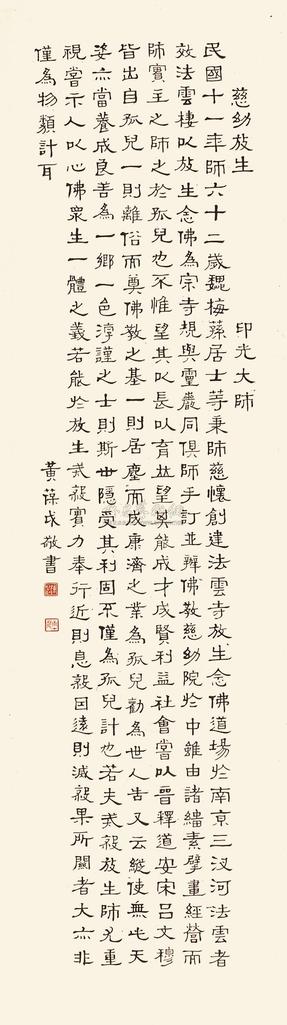 慈幼放生 印光大師
民國十一年師六十二歲魏梅蓀居士等秉師慈懷創建法雲寺放生念佛道場於南京三汊河法雲者
效法雲棲以放生念佛為宗寺規與靈巖同俱師手訂並辦佛教慈幼院於中雖由諸緇素擘畫經營而
師實主之師之於孤兒也不惟望其以長以育並望其能成才成賢利益社會嘗以晉釋道安宋呂文穆
皆出自孤兒一則離俗而奠佛教之基一則居塵而成康濟之業為孤兒勸為世人告又云縱使無此天
姿亦當養成良善為一鄉一邑淳謹之士則斯世隱受其利固不僅為孤兒計也若夫戒殺放生師尤重
視嘗示人以心佛眾生一體之義若能於放生戒殺實力奉行近則息殺因遠則滅殺果所關者大亦非
僅為物類計耳
黃葆戉敬書